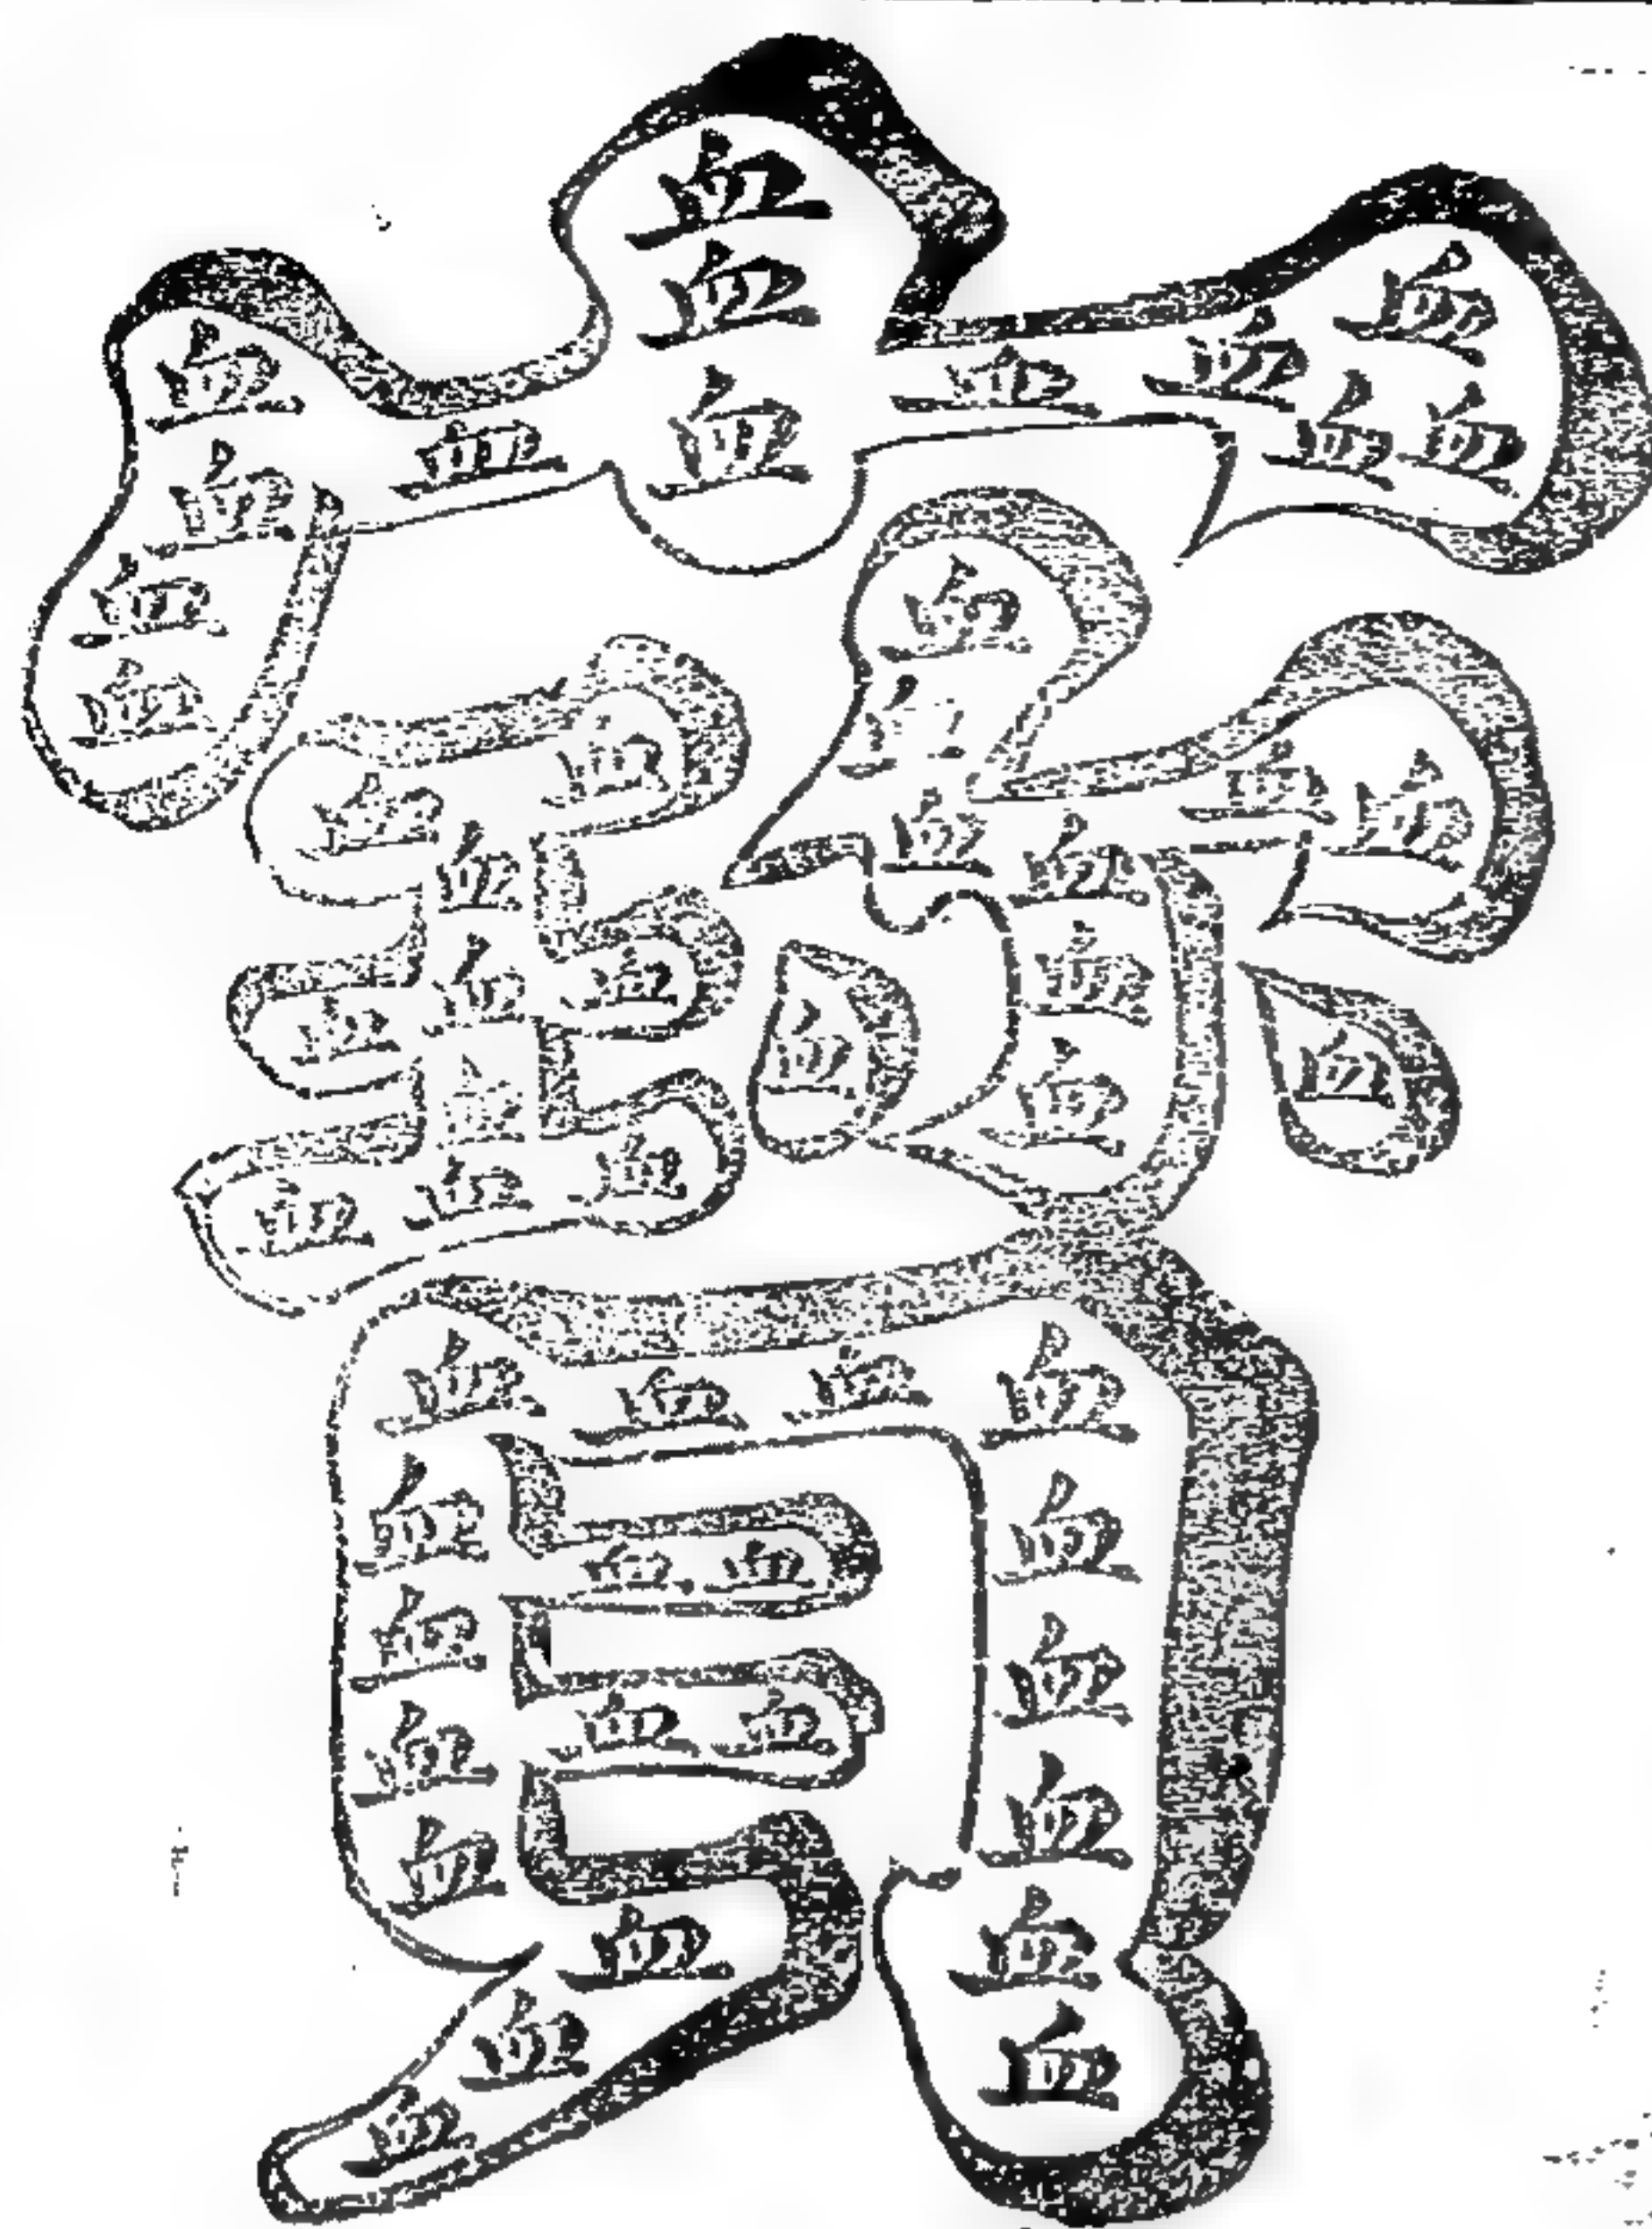 寳
血血血血血血血血血血血血血
血血血血血血血血血血
血血血血血血血血血血
血血血血血血血血血血血血血血血血血血血血